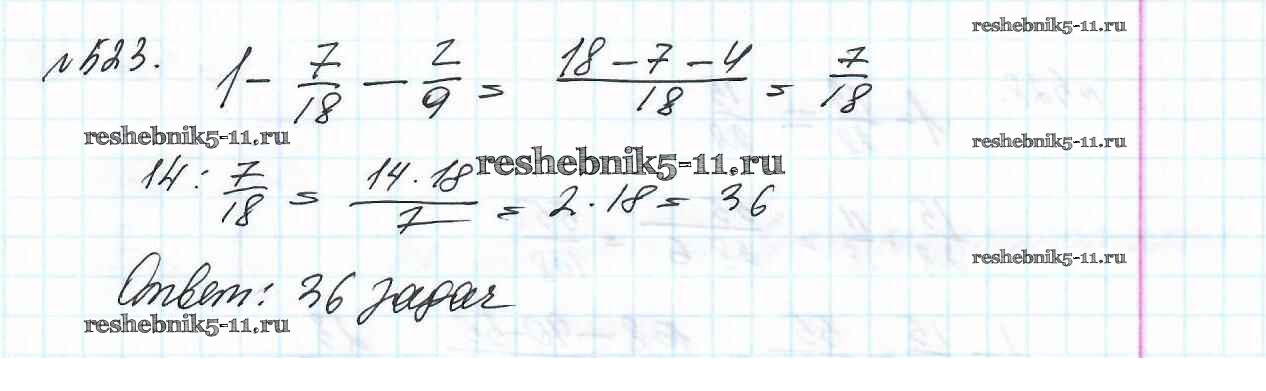 reshebnik5-11.ru
№523. 1 - 7/18 - 2/9 = (18 - 7 - 4)/18 = 7/18
reshebnik5-11.ru
reshebnik5-11.ru
14 : 7/18 = (14 · 18)/7 = 2 · 18 = 36
reshebnik5-11.ru
reshebnik5-11.ru
Ответ: 36 задач
reshebnik5-11.ru